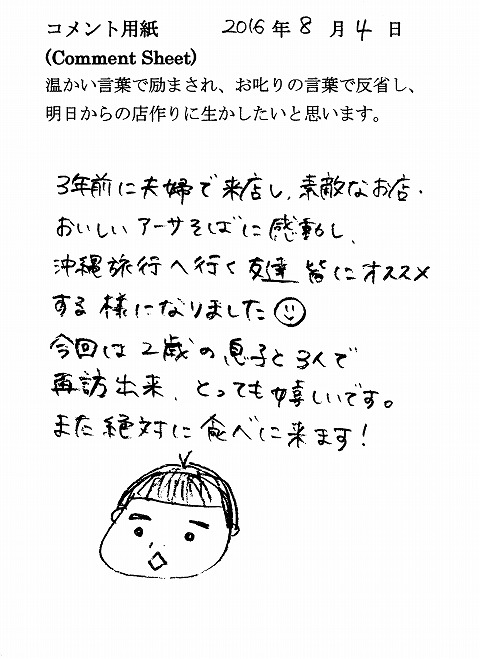 コメント用紙 2016年8月4日
(Comment Sheet)
温かい言葉で励まされ、お叱りの言葉で反省し、
明日からの店作りに生かしたいと思います。
3年前に夫婦で来店し、素敵なお店・
おいしいアーサそばに感動し、
沖縄旅行へ行く友達皆にオススメ
する様になりました
今回は2歳の息子と3人で
再訪出来、とっても嬉しいです。
また絶対に食べに来ます!